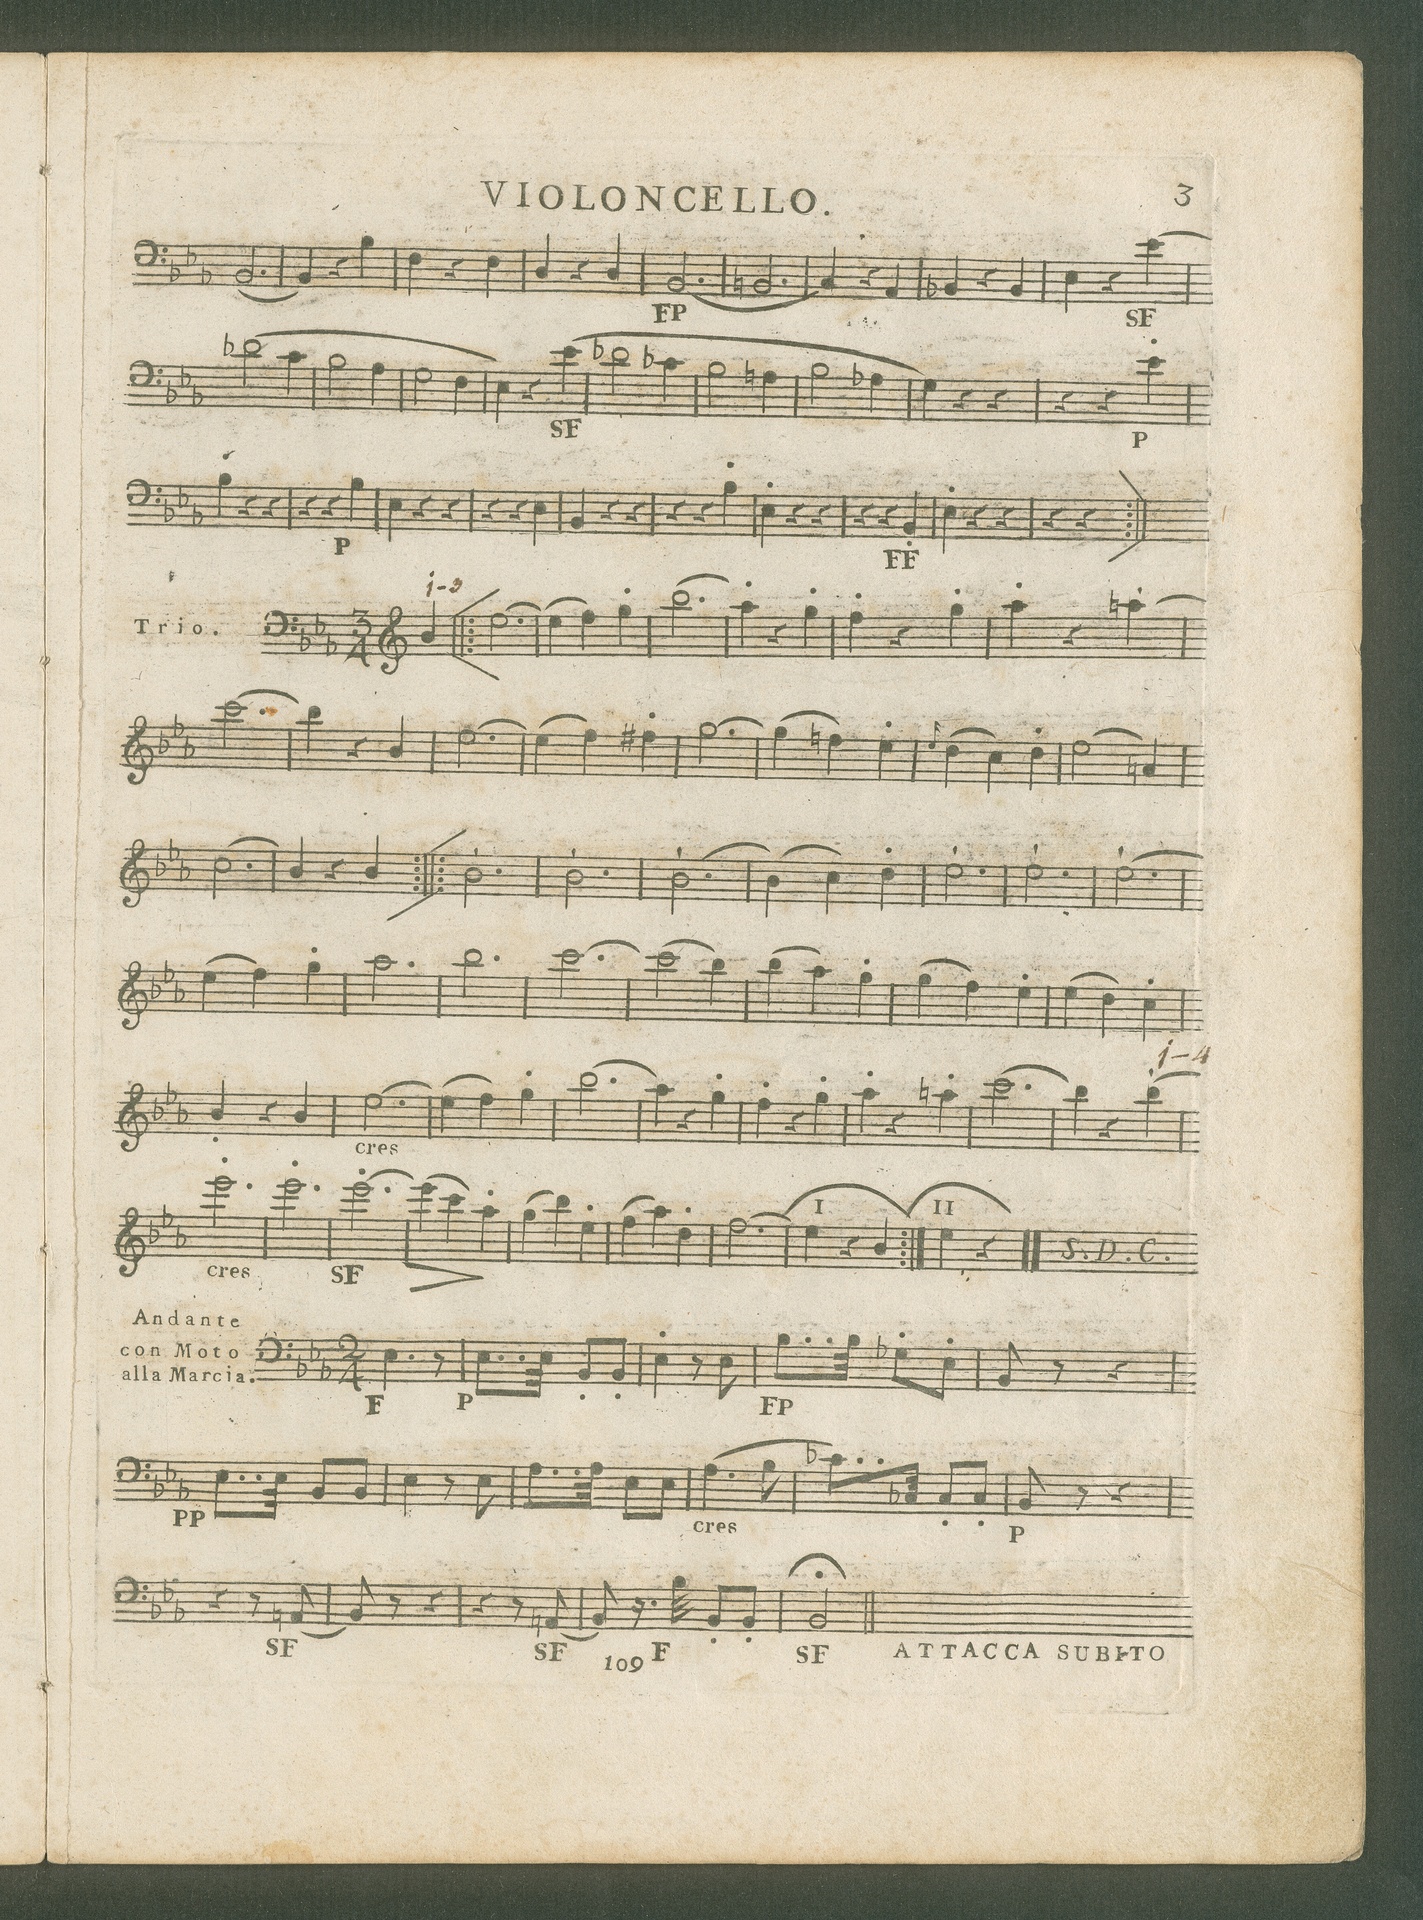 VIOLONCELLO. 3
FP SF
SF P
P FF
1-3
Trio. 3/4
1-4
cres
I II
S. D. C.
cres SF
Andante
con Moto
alla Marcia. 2/4
F P FP
PP cres P
SF SF F SF ATTACCA SUBITO
109